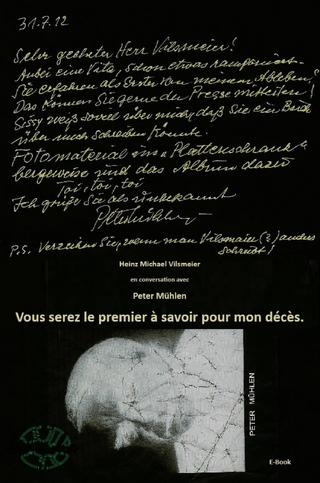 31.7.12
Sehr geehrter Herr Vilsmeier!
Anbei eine Vita, schon etwas ramponiert.
Sie erfahren als Erster von meinem Ableben!
Das können Sie gerne der Presse mitteilen!
Sissy weiß soviel über mich, daß Sie ein Buch
über mich schreiben könnte.
Fotomaterial im „Plattenschrank"
bergeweise und das Album dazu
Toi, toi, toi
Ich grüße Sie als unbekannt
Peter Mühlen
P.S. Verzeihen Sie, wenn man Vilsmaier (?) anders
schreibt!
Heinz Michael Vilsmeier
en conversation avec
Peter Mühlen
Vous serez le premier à savoir pour mon décès.
PETER MÜHLEN
E-Book